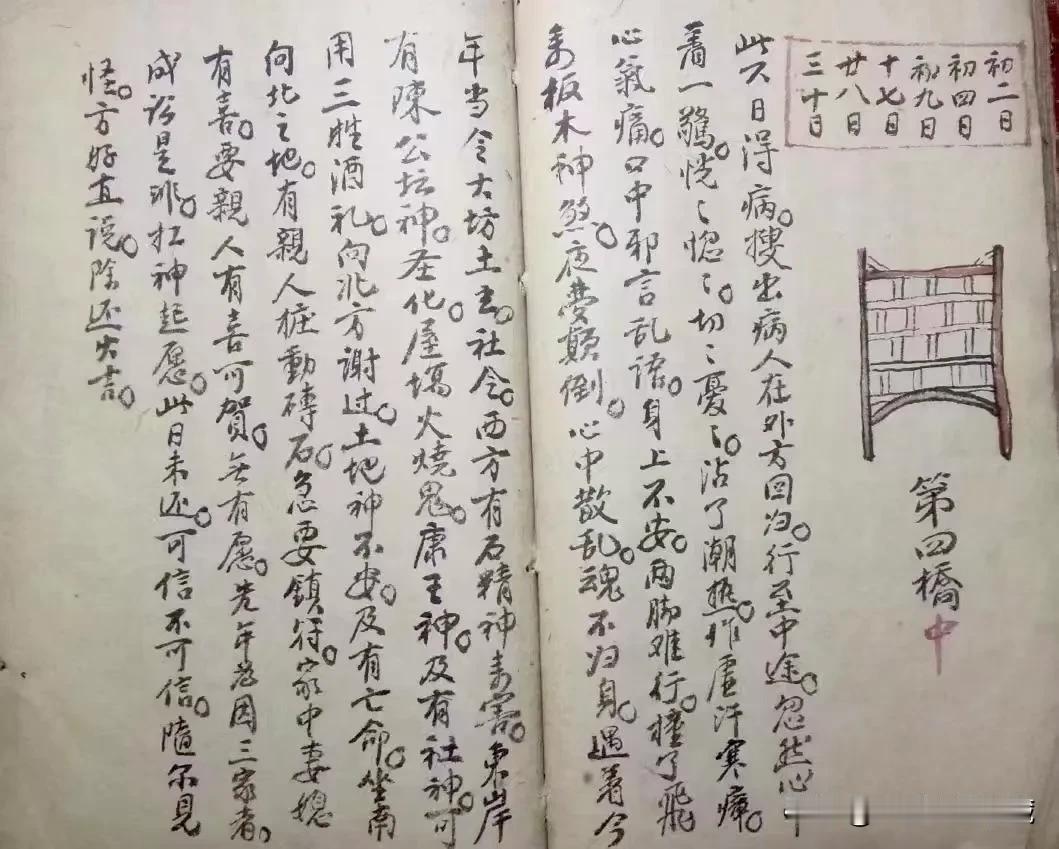 初二日
初四日
初九日
十七日
廿八日
三十日
第四橋中
此六日得病。搜出病人在外方回归。行至中途。忽然心中
着一驚。恍々惚々。切々憂々。沾了潮热。作虚汗寒瘴。
心氣痛。口中邪言乱语。身上不安。两脚难行。撞了飛
来板木神煞。夜夢颠倒。心中散乱。魂不归身。遇着今
年当令大坊土主。社令。西方有石精神来害。東岸
有陳公坛神。圣化屋塲火燒鬼。康王神。及有社神。可
用三牲酒礼。向北方谢过。土地神不安。及有亡命。坐南
向北之地。有親人桩動磚石。急要鎮符。家中妻媳
有喜。要親人有喜可賀。無有愿。先年為因三家者。
成讼是非。扛神起愿。此日未还。可信不可信。隨尔見
怪。方好直説。除还大吉。